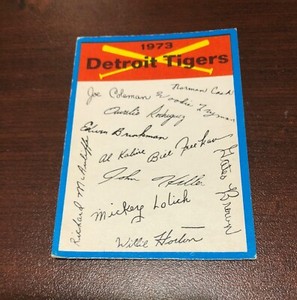 1973
Detroit Tigers
Norman Cash
Joe Coleman
Woodie Fryman
Aurelio Rodriguez
Edwin Brinkman
Al Kaline
Bill Freehan
Gates Brown
John Hiller
Mickey Lolich
Richard McAuliffe
Willie Horton